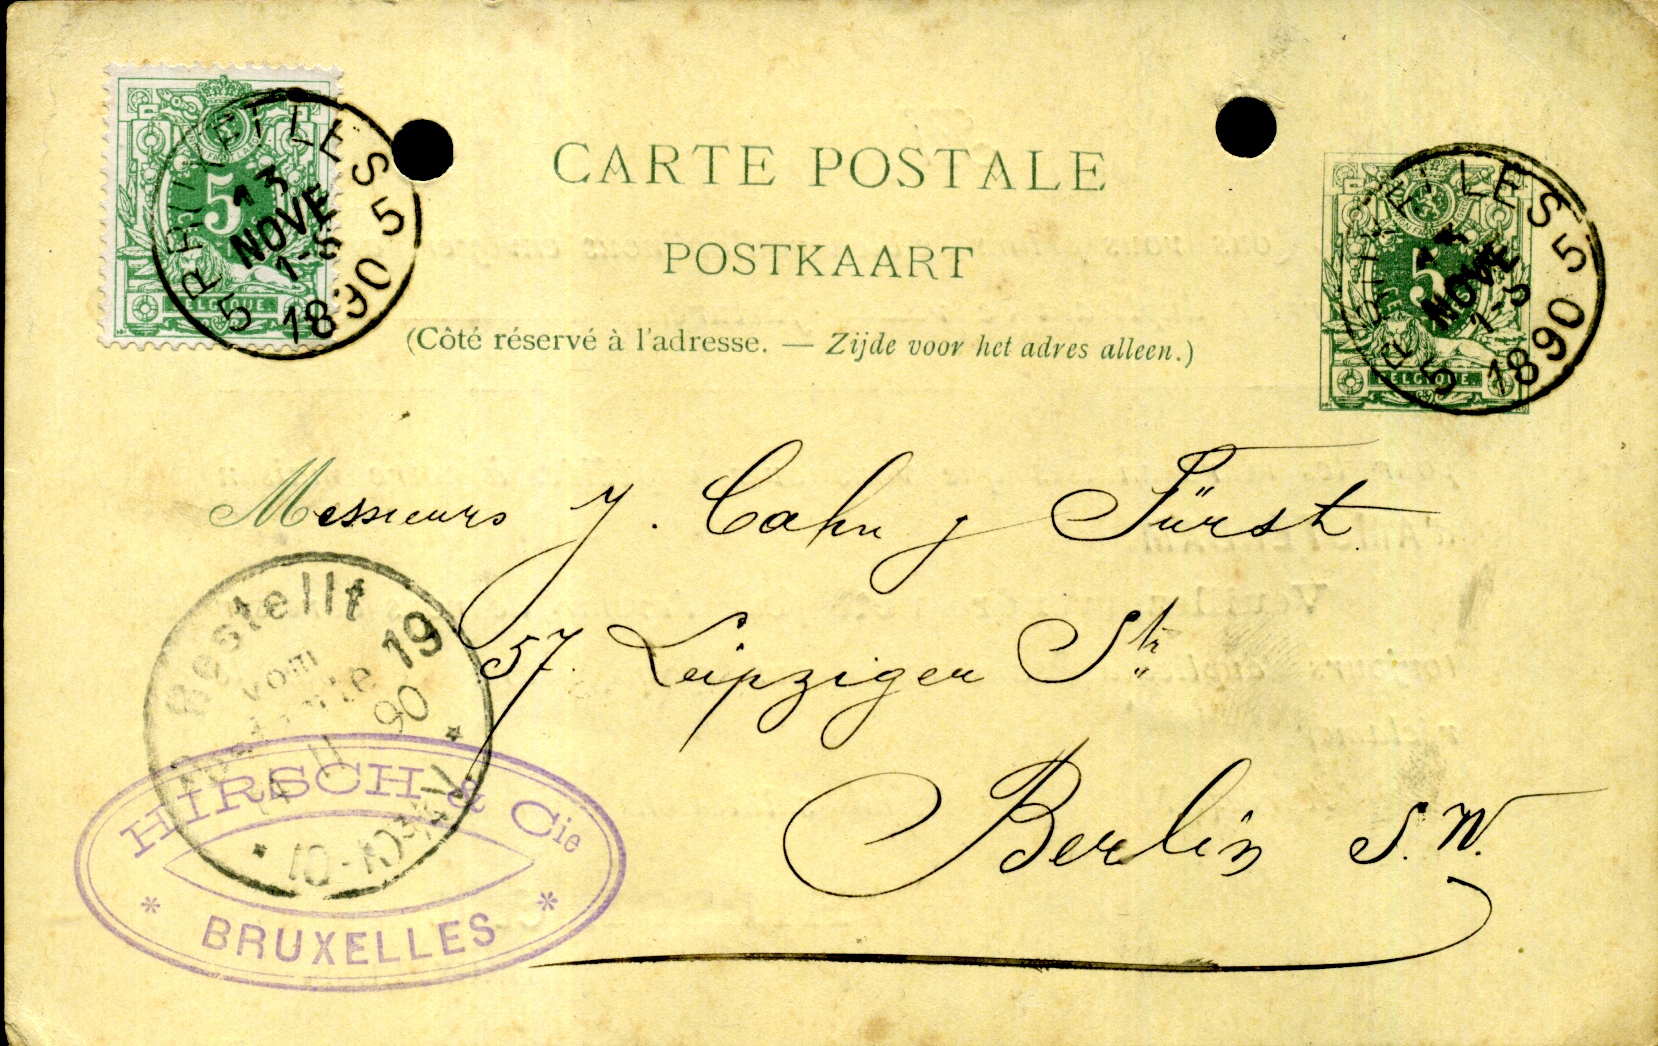 5
BELGIQUE
BRUXELLES 5
13
NOVE
1-S
1890
5
CARTE POSTALE
POSTKAART
(Côté réservé à l'adresse. — Zijde voor het adres alleen.)
5
BELGIQUE
BRUXELLES 5
13
NOVE
1-S
1890
5
Messieurs J. Cahn & Fürst
57. Leipziger Str
Berlin S.W.
Bestellt
vom
Postamte 19
11 90
HIRSCH & Cie
BRUXELLES